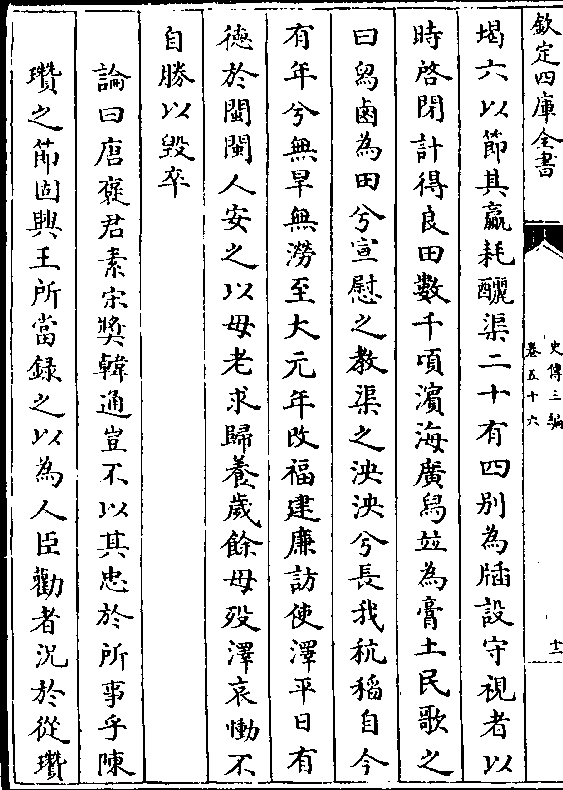 欽定四庫全書
史傳三編
卷五十六
十
堨六以節其贏耗釃渠二十有四別為牐設守視者以
時啓閉計得良田數千頃濵海廣舄並為膏土民歌之
曰舄鹵為田兮宣慰之教渠之泱泱兮長我秔稻自今
有年兮無旱無澇至大元年改福建廉訪使澤平日有
徳於閩閩人安之以母老求歸養歲餘母殁澤哀慟不
自勝以毀卒
論曰唐襃君素宋奬韓通豈不以其忠於所事乎陳
瓚之節固興王所當録之以為人臣勸者况於從瓚